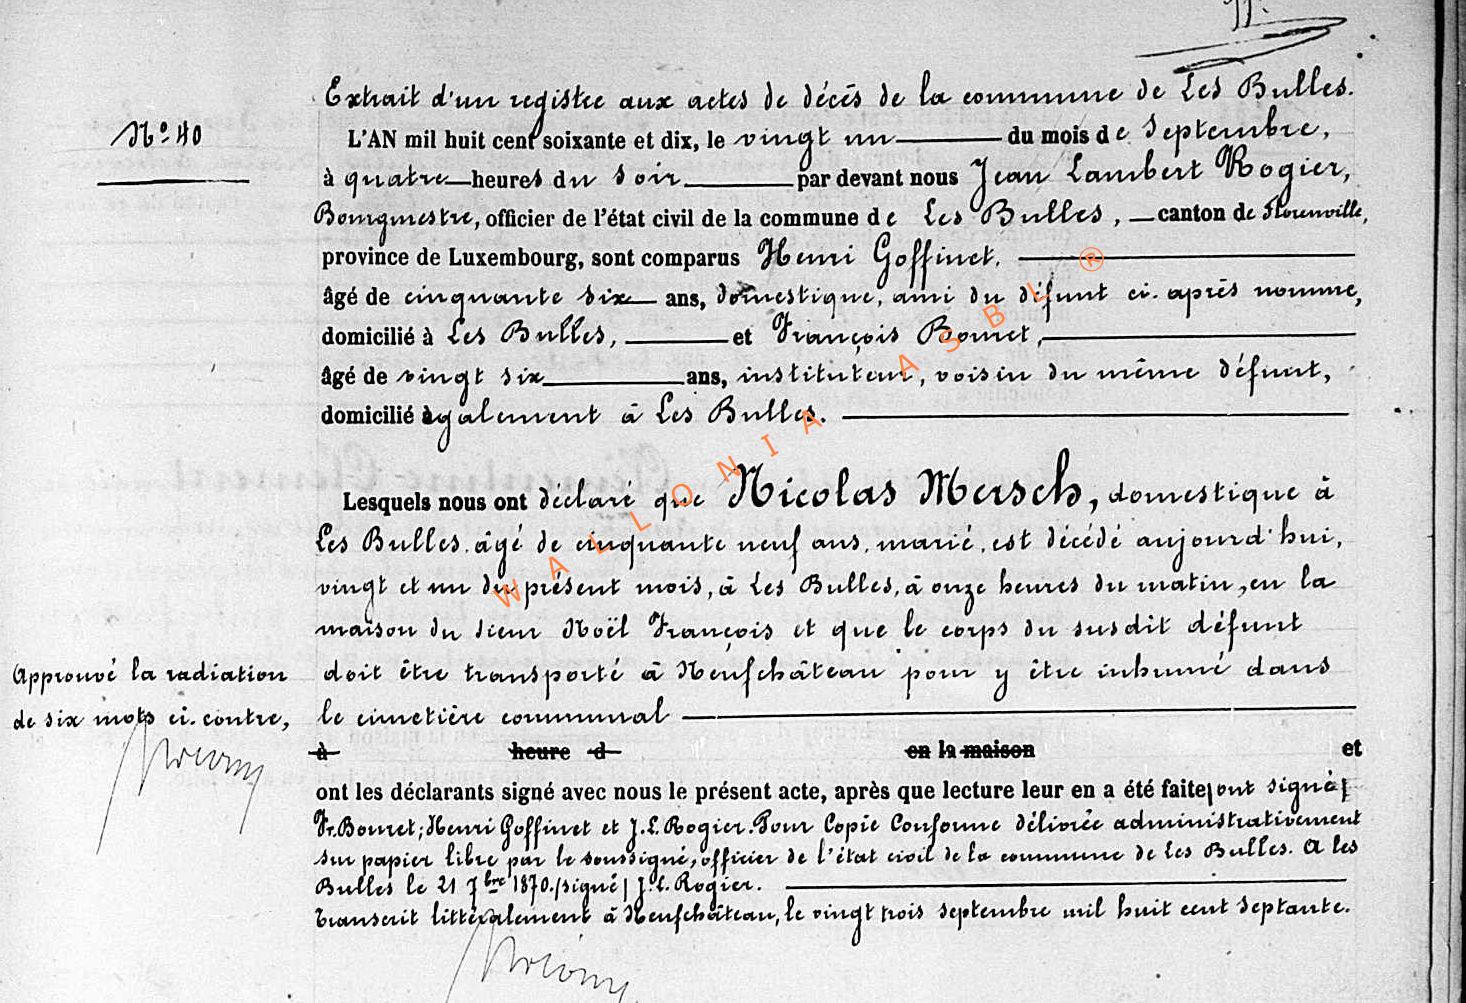 11.
Extrait d'un registre aux actes de décès de la commune de Les Bulles.
N° 40
L'AN mil huit cent soixante et dix, le vingt un du mois de Septembre,
à quatre heures du soir par devant nous Jean Lambert Rogier,
Bourgmestre, officier de l'état civil de la commune de Les Bulles, canton de Florenville,
province de Luxembourg, sont comparus Henri Goffinet,
âgé de cinquante six ans, domestique, ami du défunt ci-après nommé,
domicilié à Les Bulles, et François Bouret,
âgé de vingt six ans, instituteur, voisin du même défunt,
domicilié également à Les Bulles.
Lesquels nous ont déclaré que Nicolas Mersch, domestique à
Les Bulles, âgé de cinquante neuf ans, marié, est décédé aujourd'hui,
vingt et un du présent mois, à Les Bulles, à onze heures du matin, en la
maison du sieur Noël François et que le corps du susdit défunt
doit être transporté à Neufchâteau pour y être inhumé dans
le cimetière communal
Approuvé la radiation
de six mots ci-contre,
à heure d en la maison et
ont les déclarants signé avec nous le présent acte, après que lecture leur en a été faite (ont signé)
Fr. Bouret; Henri Goffinet et J. L. Rogier. Pour Copie Conforme délivrée administrativement
sur papier libre par le soussigné, officier de l'état civil de la commune de Les Bulles. A Les
Bulles le 21 7bre 1870. (signé) J. L. Rogier.
Transcrit littéralement à Neufchâteau, le vingt trois septembre mil huit cent septante.
WALLONIA ASBL ®